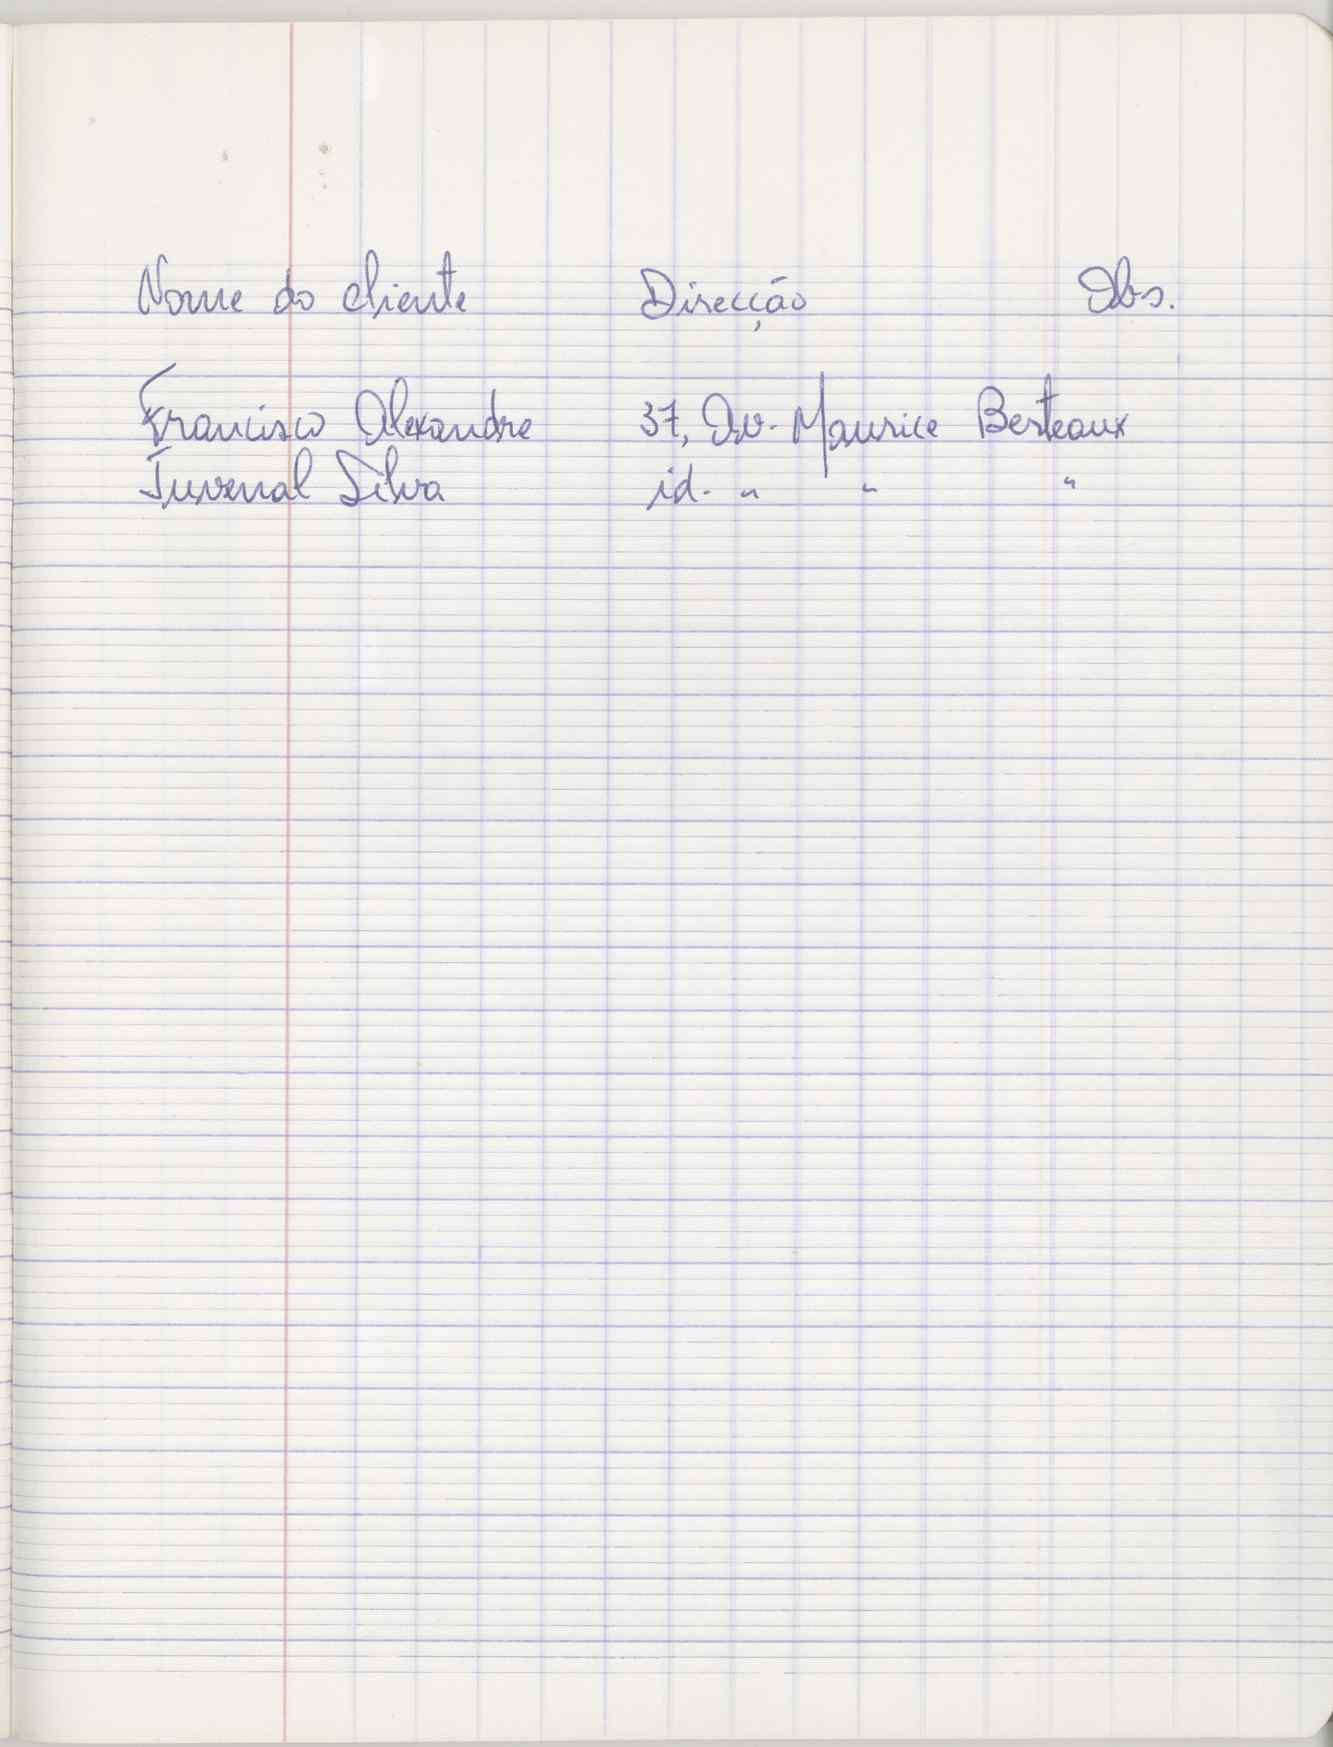 Nome do cliente Direcção Obs.
Francisco Alexandre 37, Av. Maurice Berteaux
Juvenal Silva id. " " "